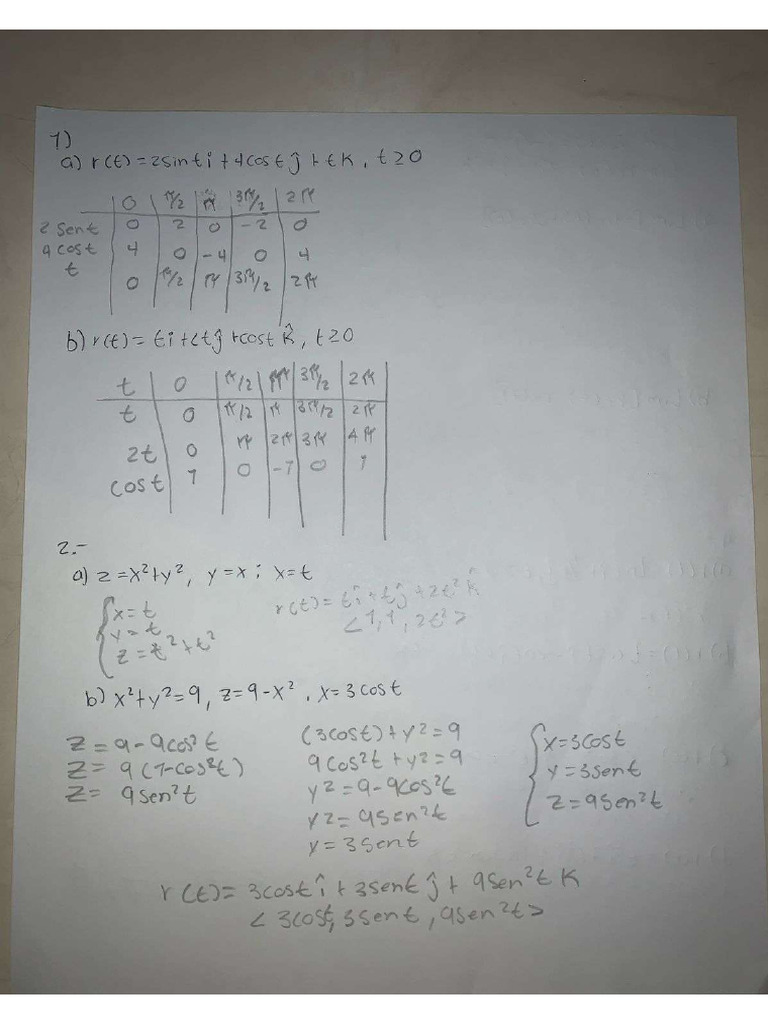 1)
a) r(t) = 2sint i + 4cost ĵ + tk, t ≥ 0
0 π/2 π 3π/2 2π
2 sent 0 2 0 -2 0
4 cost 4 0 -4 0 4
t 0 π/2 π 3π/2 2π
b) r(t) = ti + 2tĵ + cost k̂, t ≥ 0
t 0 π/2 π 3π/2 2π
t 0 π/2 π 3π/2 2π
2t 0 π 2π 3π 4π
cost 1 0 -1 0 1
2.-
a) z = x² + y², y = x ; x = t
x = t
y = t
z = t² + t²
r(t) = tî + tĵ + 2t² k̂
<1, 1, 2t²>
b) x² + y² = 9, z = 9 - x². x = 3cost
z = 9 - 9cos² t
z = 9(1-cos²t)
z = 9sen² t
(3cost) + y² = 9
9cos²t + y² = 9
y² = 9 - 9cos²t
y2 = 9sen²t
y = 3sent
x = 3cost
y = 3sent
z = 9sen²t
r(t) = 3cost î + 3sent ĵ + 9sen²t k
<3cost, 3sent, 9sen²t>